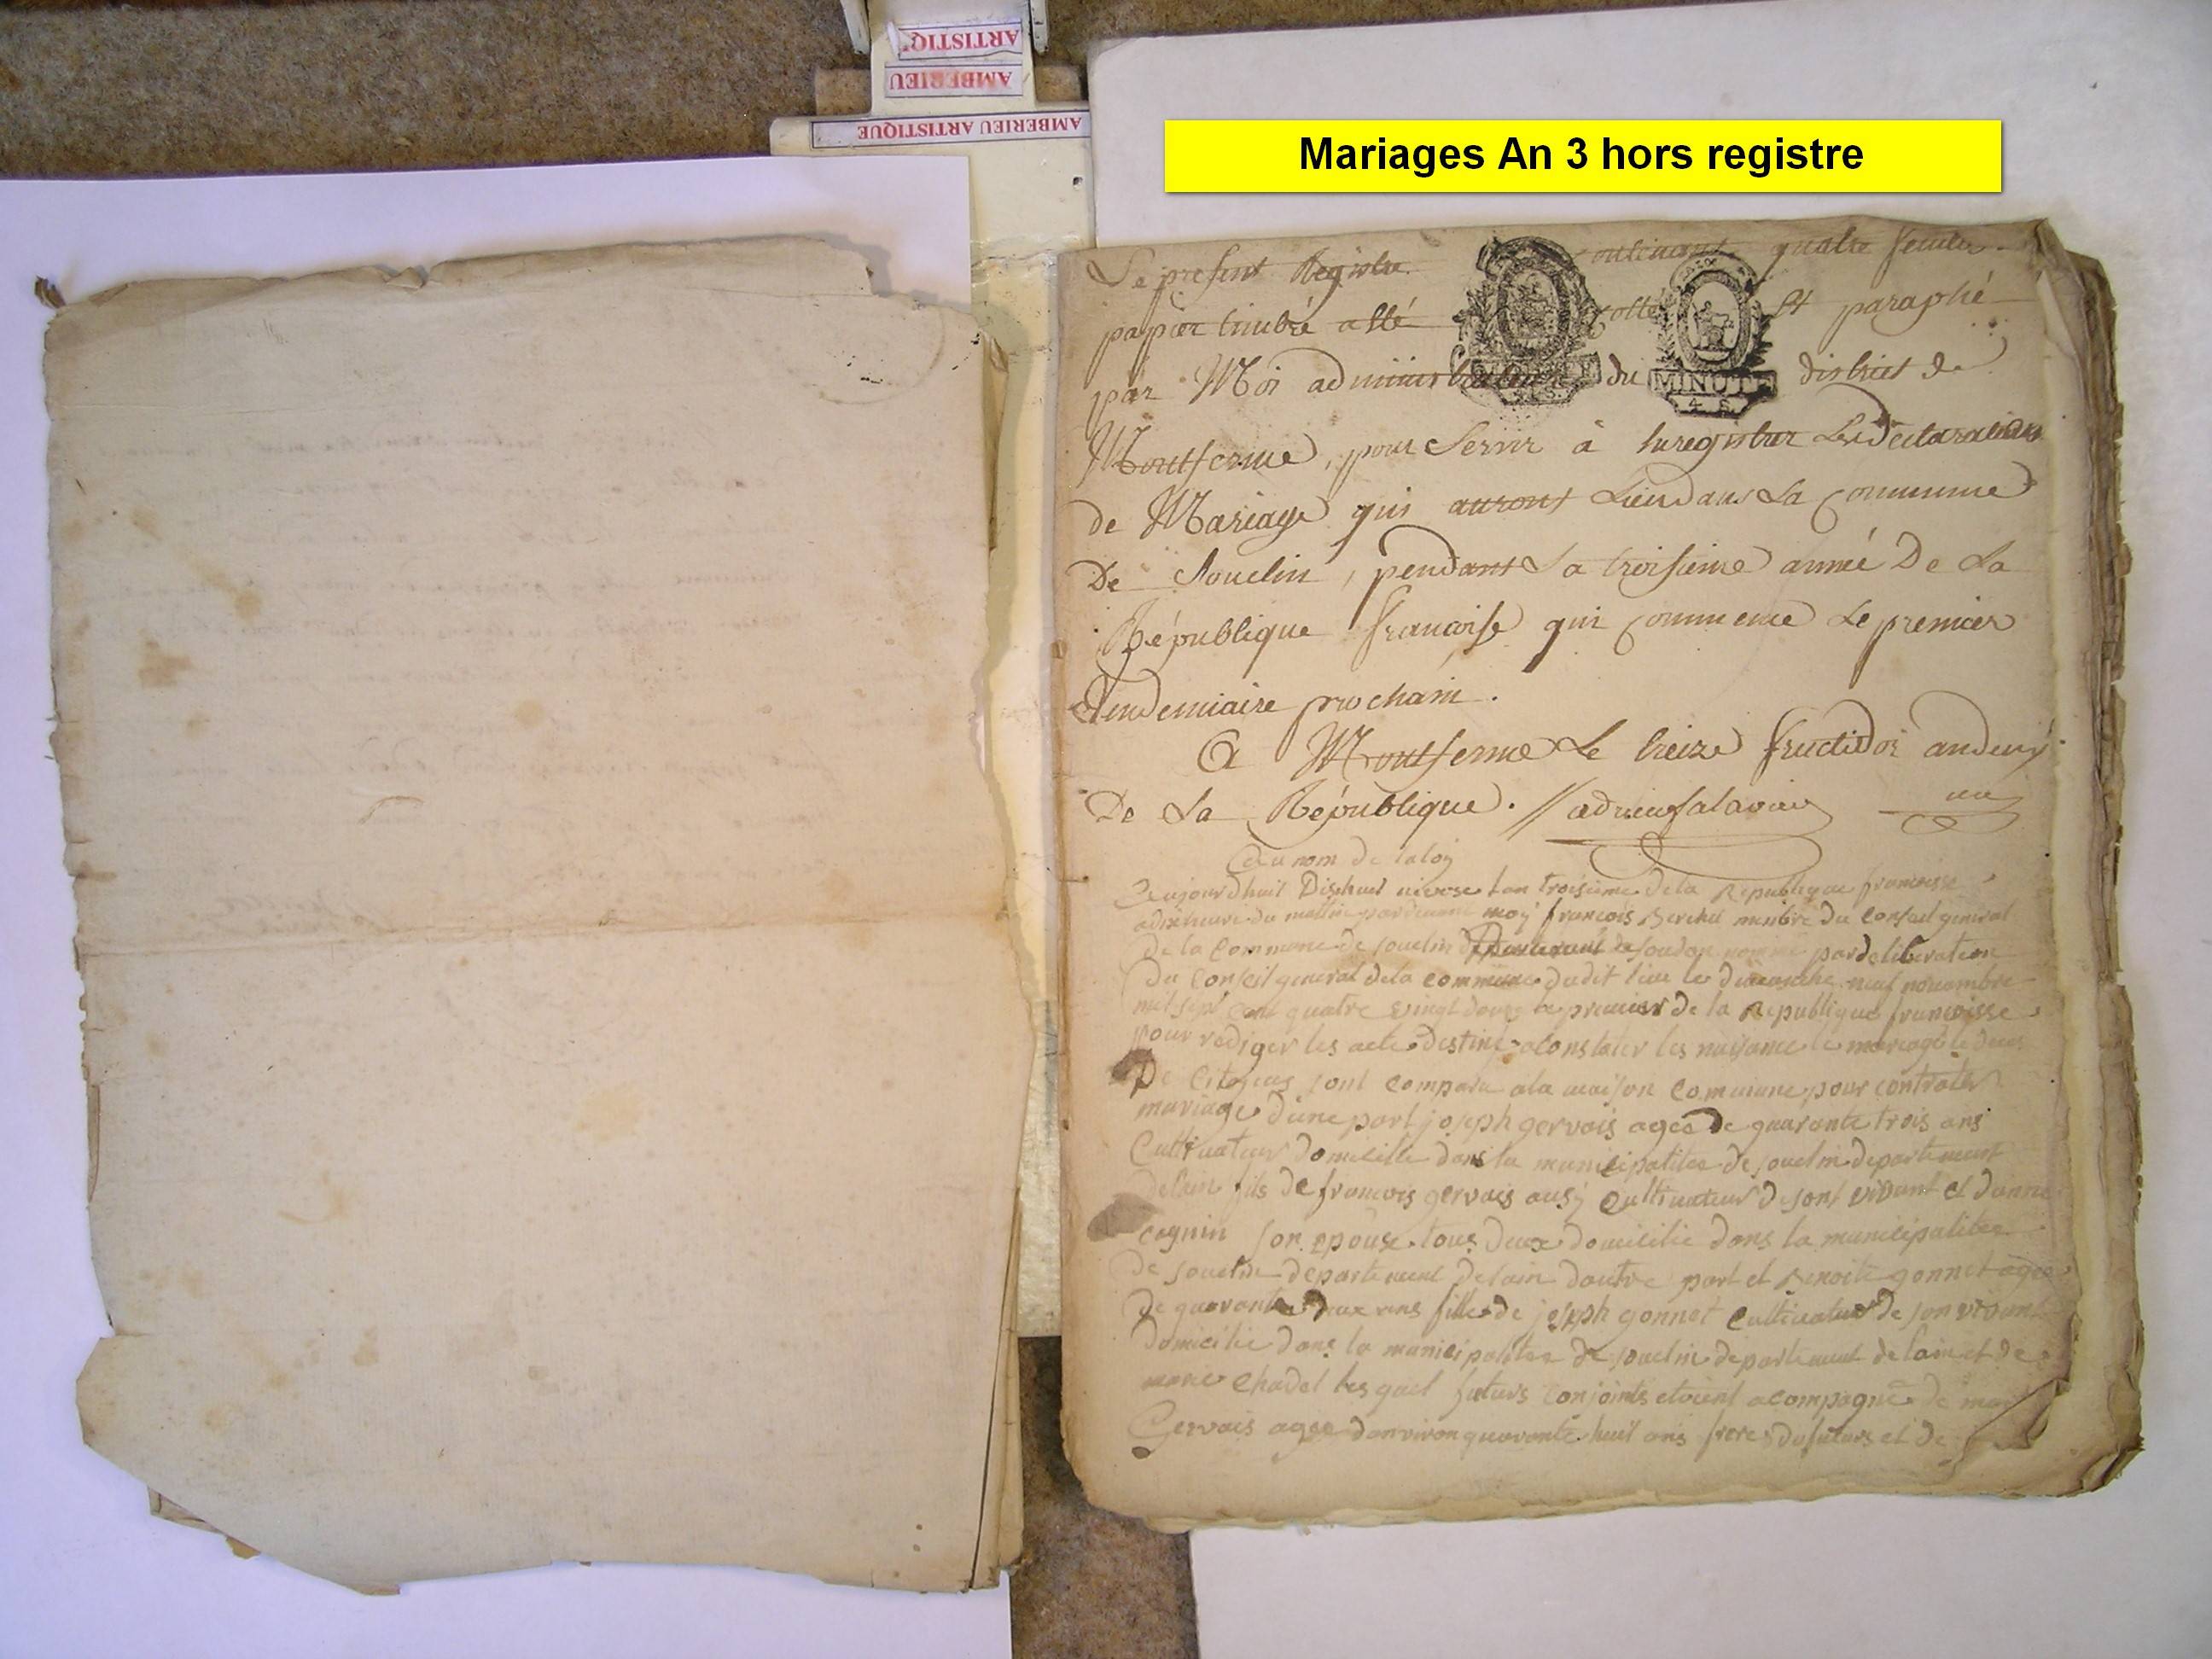 ARTISTIQ
AMBERIEU
AMBERIEU ARTISTIQUE
Mariages An 3 hors registre
Le present Registre contenant quatre feuilles
papier timbré a été cotté Et paraphé
par Moi administrateur du district de
MINUTE
4. S.
Montferme, pour Servir à Enregistrer Les déclarations
de Mariage qui auront Lieu dans La Commune
De Souclin, pendant La troisieme année De La
République francoise qui commence Le premier
Vendemiaire prochain.
A Montferme Le treize fructidor an deux
De La République. //
au nom de la loy
aujourdhuit Dixhuit nivose lan troisieme de la Republique francoisse
adix heure du mattin pardevant moy francois Berthet menbre du Conseil general
De la Commune de souclin nommé par deliberation
Du Conseil general de la commune dudit lieu le dimanche neuf nouambre
mil sept cent quatre vingt douze le premier de la Republique francoisse
pour rediger les acte destiné aconstater les naisance le mariage le deces
De Citoyens sont comparu ala maison commune pour contrater
mariage dune part joseph gervais agée De quarante trois ans
Cultivateur domicillie dans la municipalitee de souclin departement
delain fils de francois gervais ausy Cultivateur de sont vivant et danne
cognin son epouse tous deux domicilie dans la municipalitee
de souclin departement delain dautre part et Benoite gonnet agee
De quarante deux ans fille de joseph gonnet Cultivateur de son vivant
domicilie dans la municipalitee de souclin departement de lain et de
marie chadel les quel futurs conjoints etoient acompagné de
Gervais agee danviron quarante huit ans frere du futurs et de